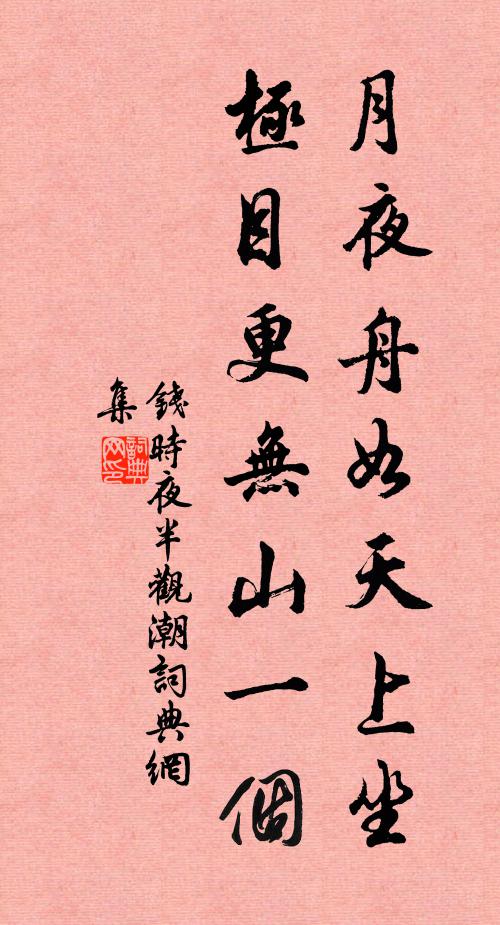 月夜舟如天上坐
極目更無山一個
錢時夜半觀潮詞典網
集
詞典網印